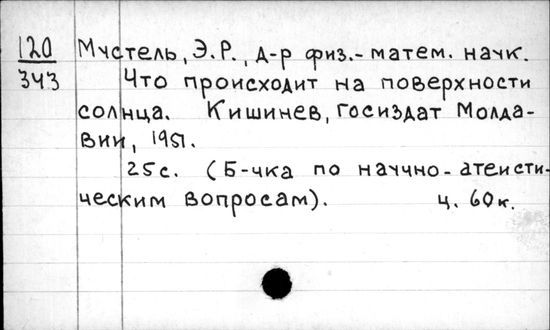 120 Мустель, Э.Р., д-р физ.-матем. наук.
343 Что происходит на поверхности
солнца. Кишинев, Госиздат Молда-
вии, 1951.
25с. (Б-чка по научно-атеисти-
ческим вопросам). ц. 60к.